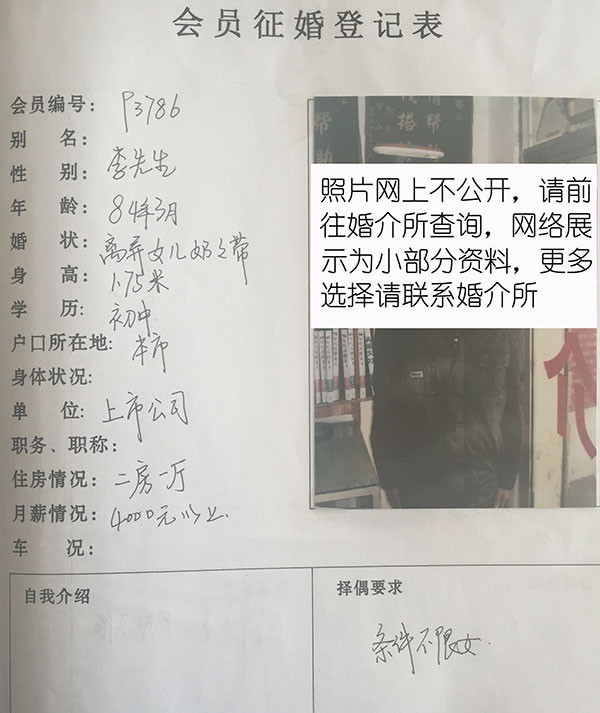 会员征婚登记表
会员编号: P3786
别 名:
性 别: 李先生
年 龄: 84年3月
婚 状: 离异女儿奶奶带
身 高: 1.75米
学 历: 初中
户口所在地: 本市
身体状况:
单 位: 上市公司
职务、职称:
住房情况: 二房一厅
月薪情况: 4000元以上.
车 况:
照片网上不公开，请前
往婚介所查询，网络展
示为小部分资料，更多
选择请联系婚介所
帮助
搭
帮
介
自我介绍
择偶要求
条件不限女.